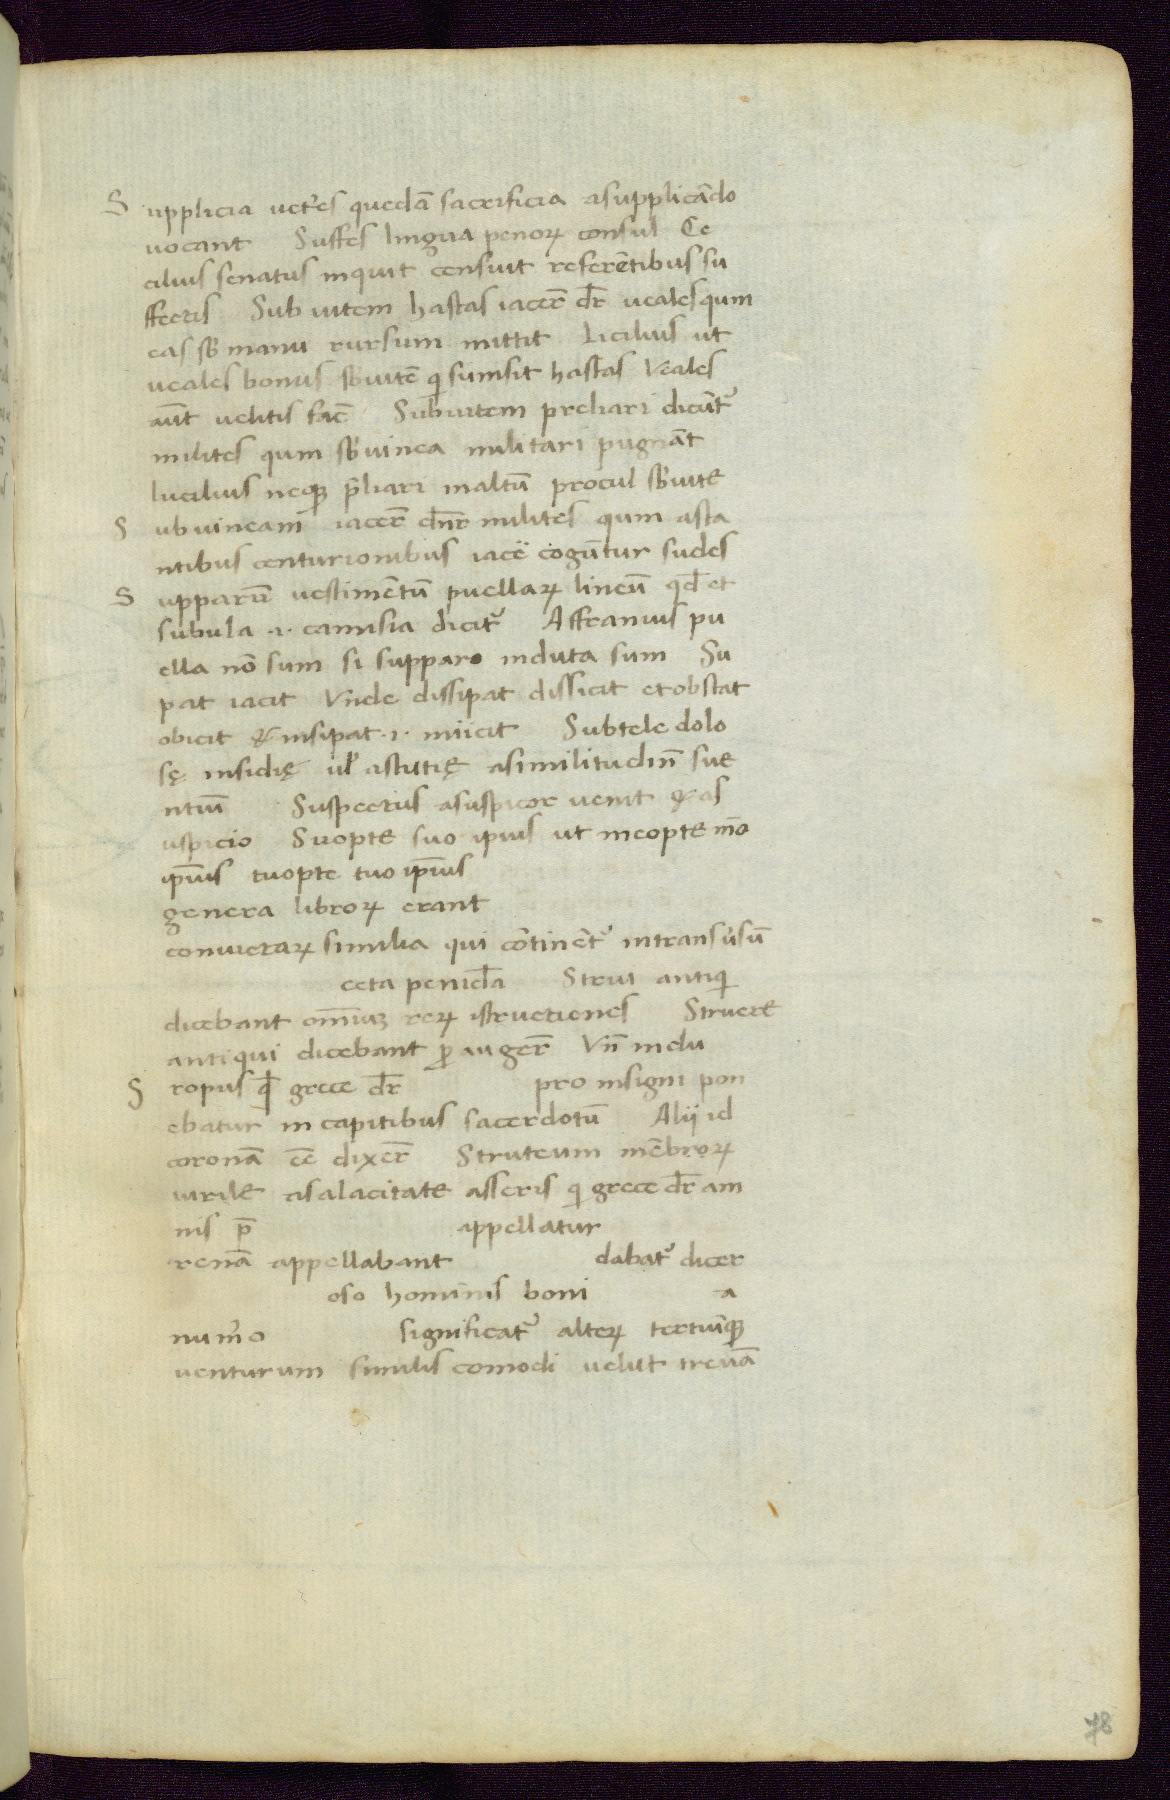 Supplicia uet'es quedā sacrificia asupplicādo
uocant Suffes lingua penoꝝ consul Ce
cilius senatus inquit censuit referētibus su
ffectis Sub uitem hastas iacer̄ dr̄ uealesqum
eas sƀ manu rursum mittit Licilius ut
ueales bonus sƀuitē qͥ sumsit hastas Veales
aūt uelitis facē Subuitem preliari dicūtᷣ
milites qum sƀuinea militari pugnāt
lucilius neqꝫ p̄liari inaltū procul sƀuite
Subuineam iacer̄ dn̄r milites qum asta
ntibus centurionibus iacē cogūtur sudes
Supparū uestimētū puellaꝝ lineū qđ et
subula .i. camisia dicitᷣ Affranius pu
ella nō sum si supparo induta sum Su
pat iacit Vnde dissipat dissicit et obstat
obicit & insipat .i. iniicit Subtele dolo
sę insidię ul' astutię asimilitudin̄ sue
ntiū Suspectus asuspicor uenit & as
uspicio Suopte suo ipius ut meopte m̄o
ip̄ius tuopte tuo ip̄ius
genera libroꝝ erant
conuieraꝝ similia qui cōtinētᷣ intransūsū
ceta penicl̄a Strui antiqͥ
dicebant om̄iuꝫ reꝝ istructiones Struere
antiqui dicebant ꝓ auger̄ Vn̄ indu
Sropus qͥ grece dr̄ pro insigni pon
ebatur in capitibus sacerdotū Alij id
coronā cē dixer̄ Struteum mēbroꝝ
uirile asalacitate asseris qͥ grece dr̄ am
nis p̄ appellatur
renā appellabant dabatᷣ dicer
oso hominis boni a
num'o significatᷣ alteꝝ tertiūqꝫ
venturum similis comodi uelut treuā
78